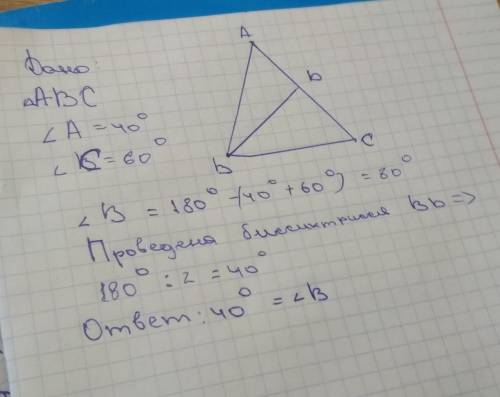 Дано:
△ABC
∠A = 40°
∠C = 60°
A
D
C
B
∠B = 180° - (40° + 60°) = 80°
Проведена биссиктриса BD =>
180° : 2 = 40°
Ответ: 40° = ∠B